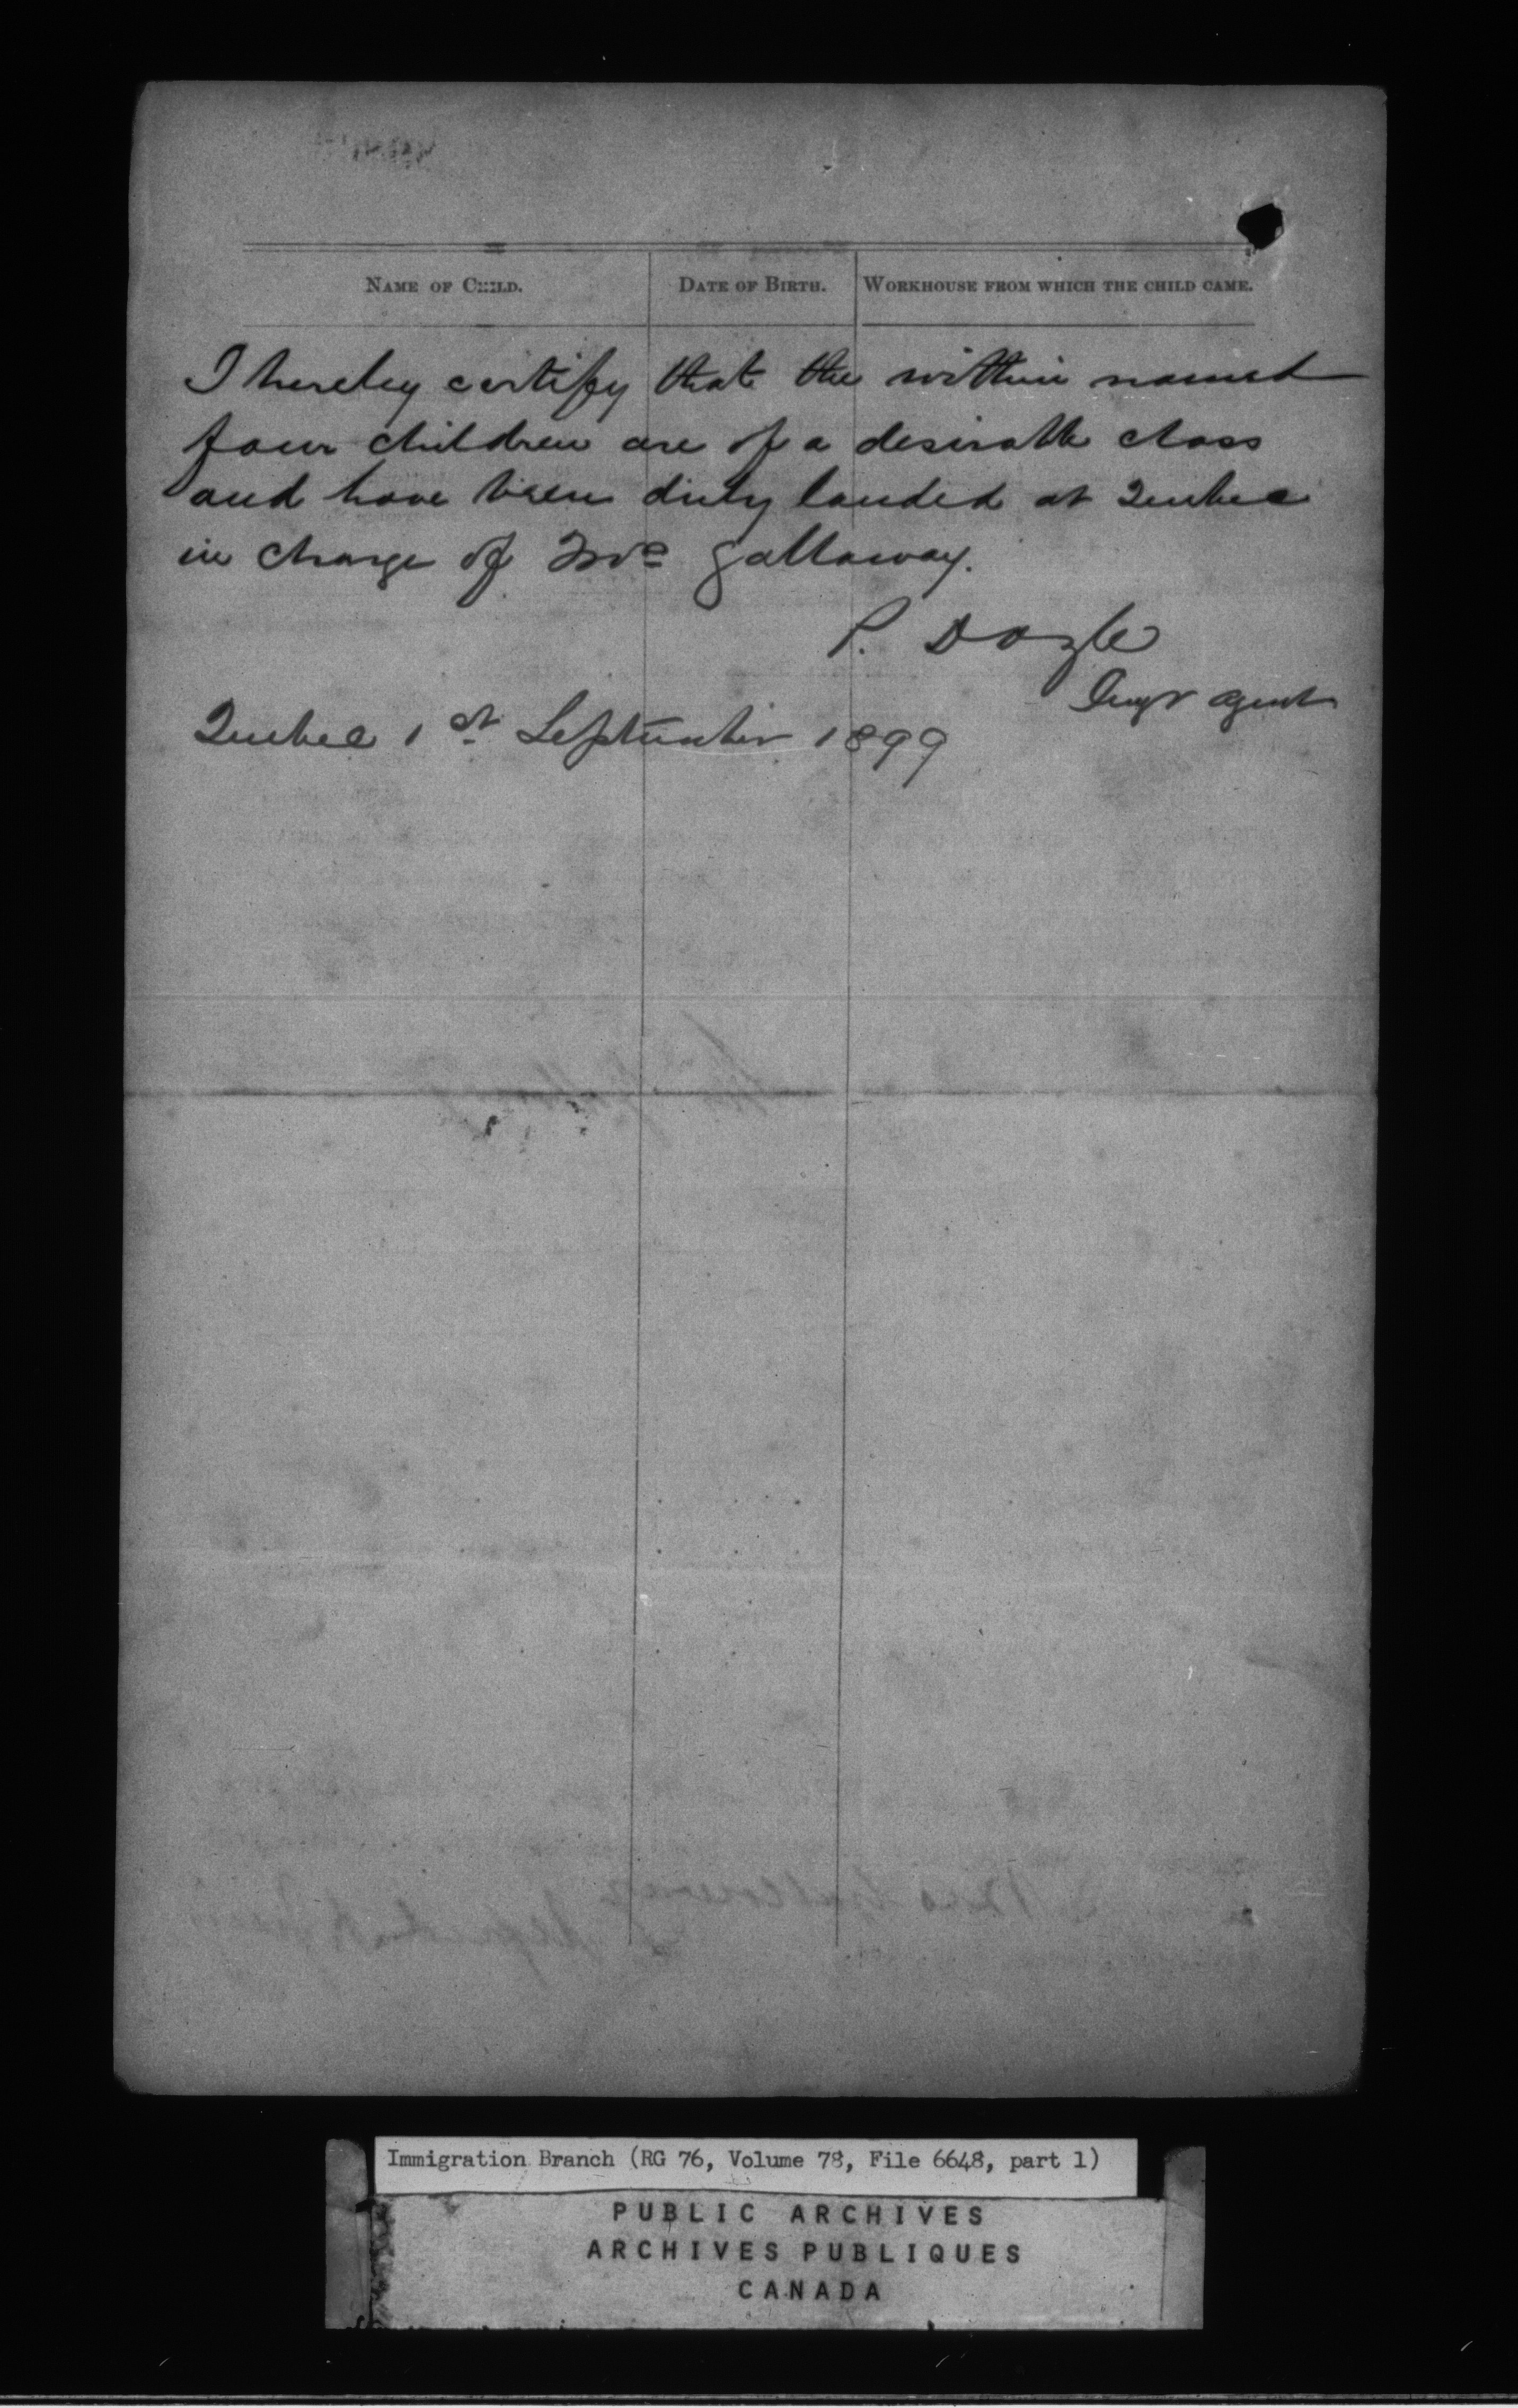 NAME OF CHILD. DATE OF BIRTH. WORKHOUSE FROM WHICH THE CHILD CAME.
I hereby certify that the within named
four children are of a desirable class
and have been duly landed at Quebec
in charge of Mrs Gallaway.
P. Doyle
agent
Quebec 1st September 1899
Immigration Branch (RG 76, Volume 78, File 6648, part 1)
PUBLIC ARCHIVES
ARCHIVES PUBLIQUES
CANADA